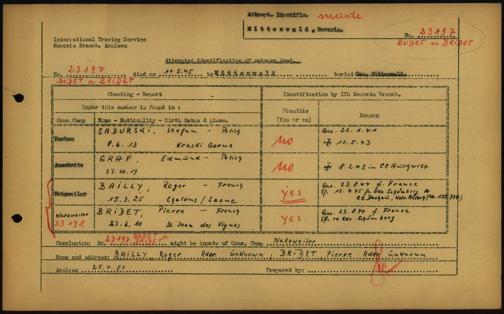 Attempt. Identific. made
Mittenwald, Bavaria.
International Tracing Service
Records Branch, Arolsen
No. 23197
BUDET or BRIDET
Attempted identification of unknown dead.
No. 23197 died on 11.5.45 in Mittenwald buried Cem. Mittenwald.
BUDET or BRIDET
Checking - Report
Identification by ITS Records Branch.
Under this number is found in:
Possible (Yes or no)
Reason
Conc. Camp Name - Nationality - Birth dates & place.
Dachau SADURSKI, Stefan - Polish no Arr. 22.1.41
8.6.13 11.5.43
Auschwitz GRAF, Edmund - Polish NO 8.2.42 in CC Auschwitz
27.10.19
Natzweiler BAILLY, Roger - French yes Arr. 23.8.44 f. France
15.3.25 Chalons/Saone
Natzweiler BRIDET, Pierre - French yes. Arr. 23.8.44 f. France
23198 23.6.10 St. Jean des Vignes
Conclusion: No. 23197 might be inmate of Conc. Camp Natzweiler
Name and address: BAILLY Roger Addr. unknown; BRIDET Pierre Addr. unknown
Arolsen 25.4.51 Prepared by: